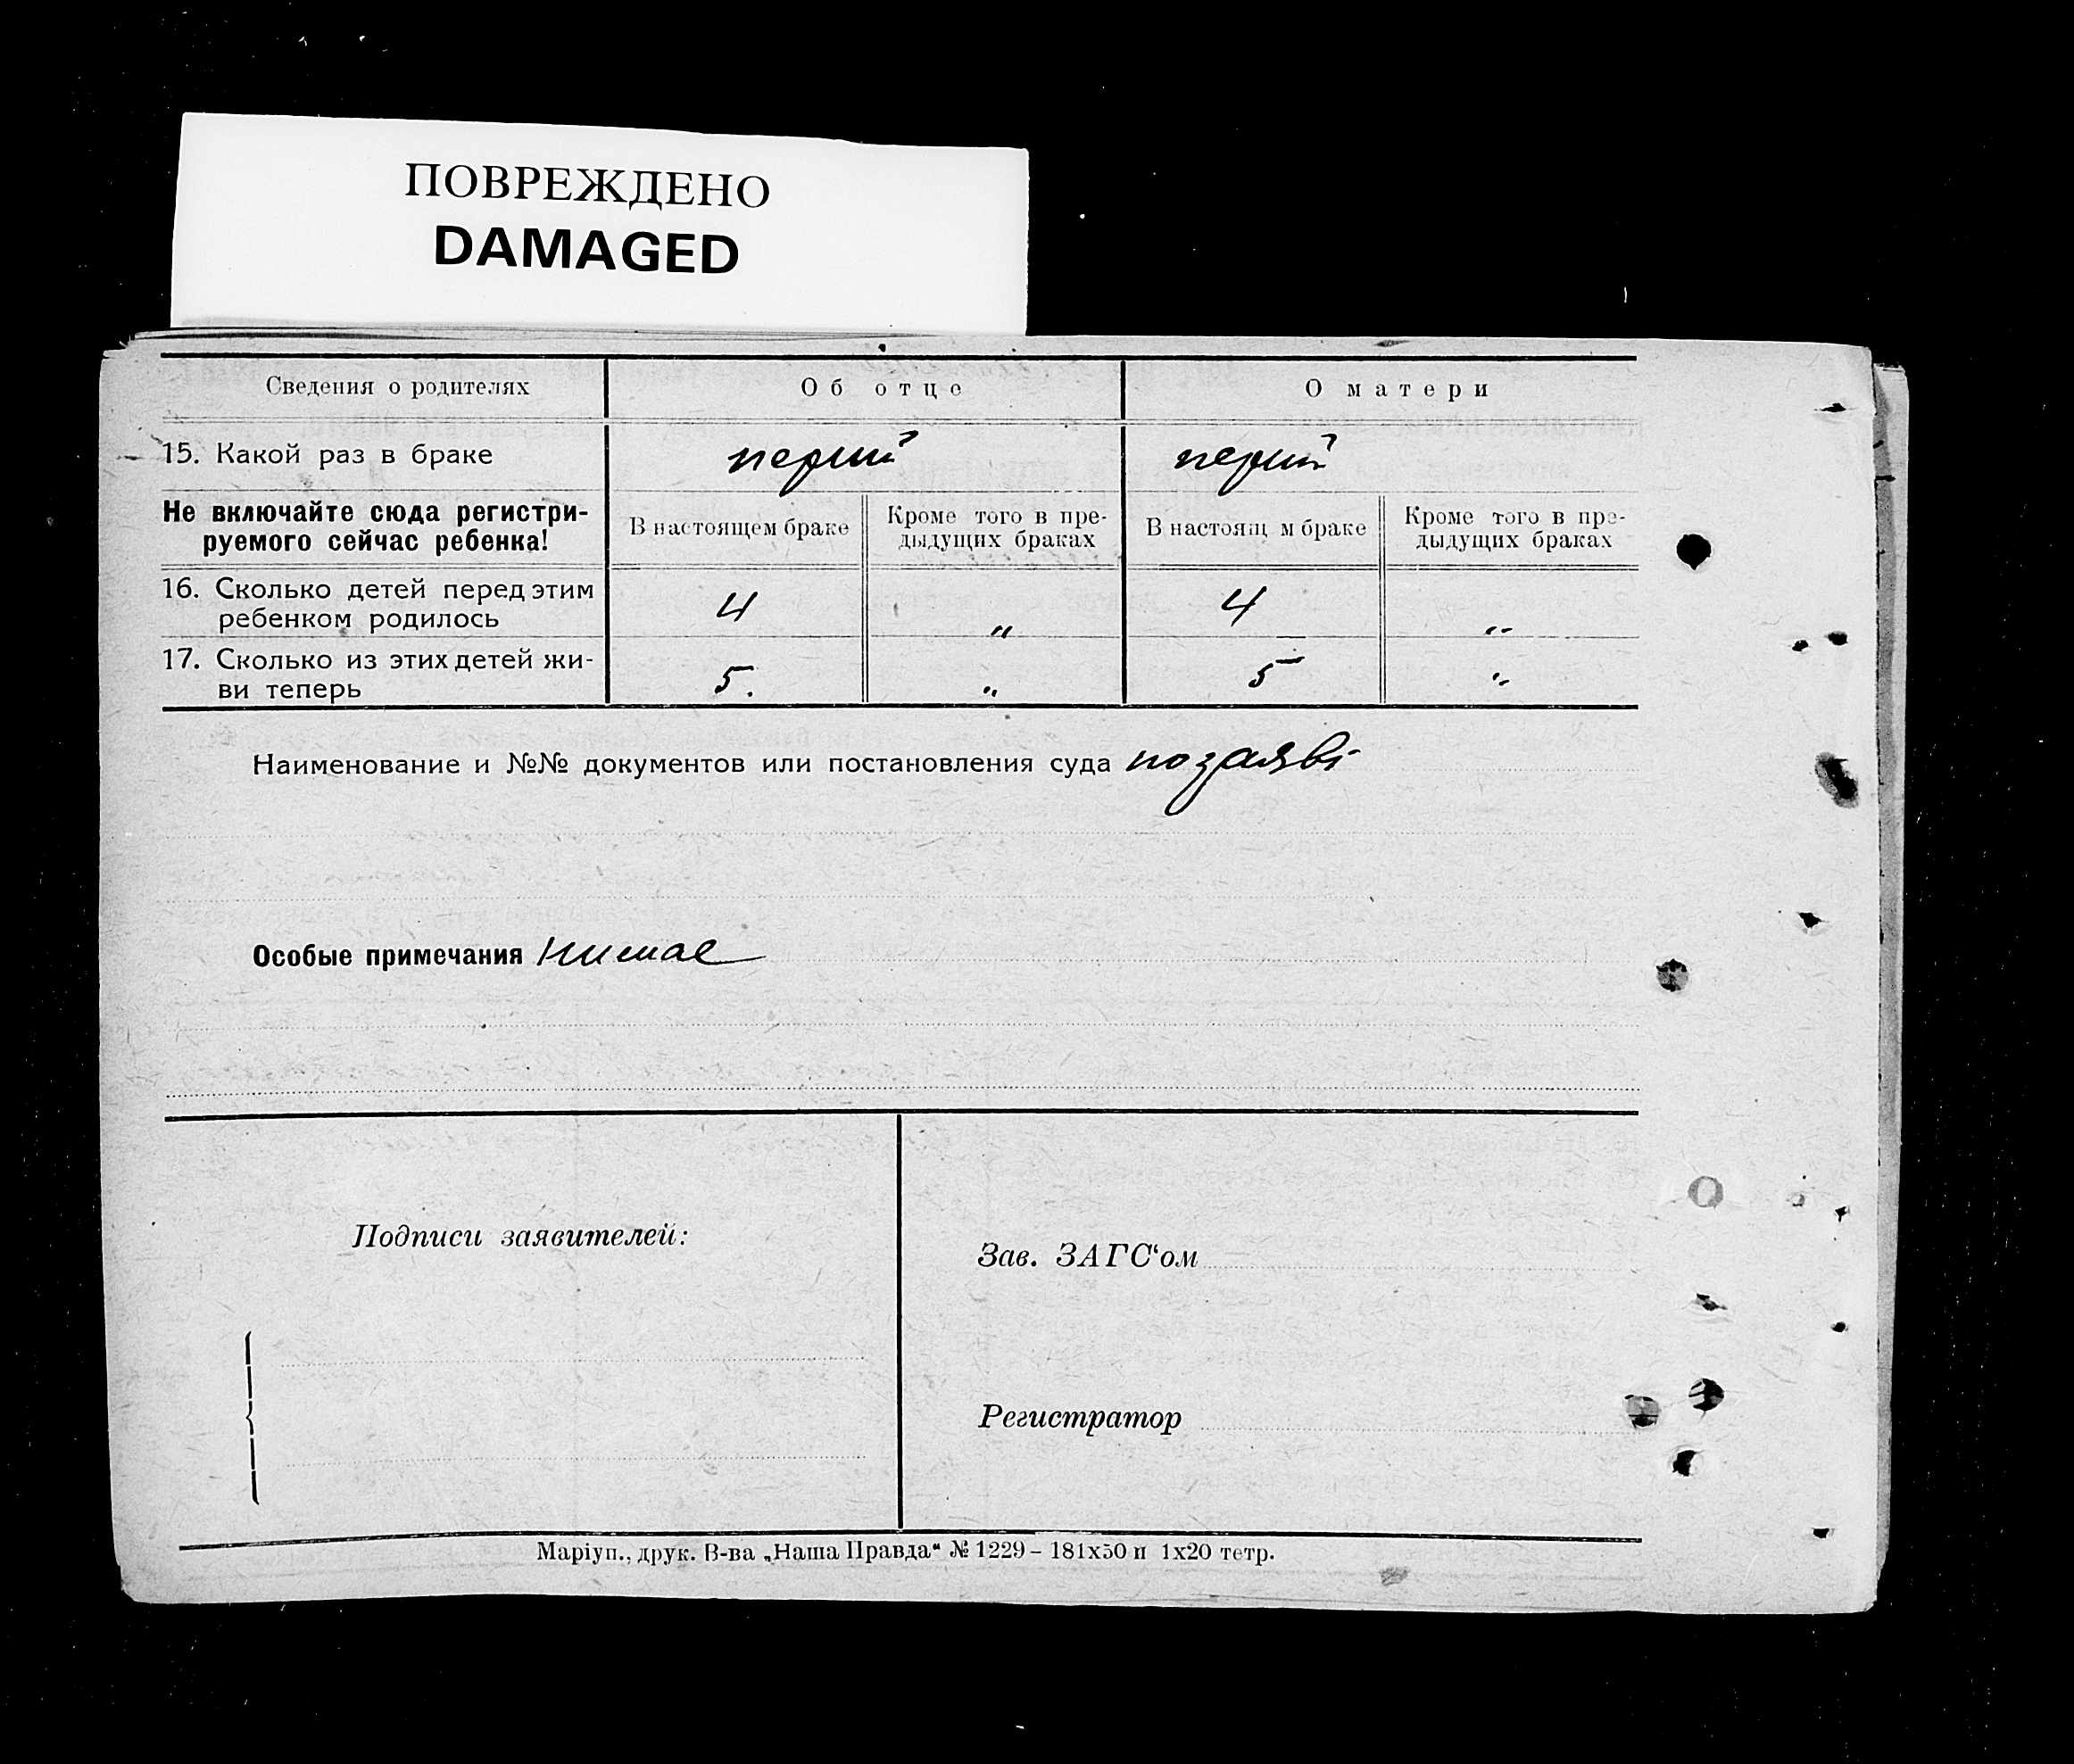 ПОВРЕЖДЕНО
DAMAGED
Сведения о родителях
Об отце
О матери
15. Какой раз в браке
перший
перший
Не включайте сюда регистри-
руемого сейчас ребенка!
В настоящем браке
Кроме того в пре-
дыдущих браках
В настоящ м браке
Кроме того в пре-
дыдущих браках
16. Сколько детей перед этим
ребенком родилось
4
"
4
"
17. Сколько из этих детей жи-
ви теперь
5.
"
5
"
Наименование и №№ документов или постановления суда по заяві
Особые примечания нимае
Подписи заявителей:
Зав. ЗАГС‘ом
Регистратор
Маріуп., друк. В-ва „Наша Правда“ № 1229 – 181х50 и 1х20 тетр.